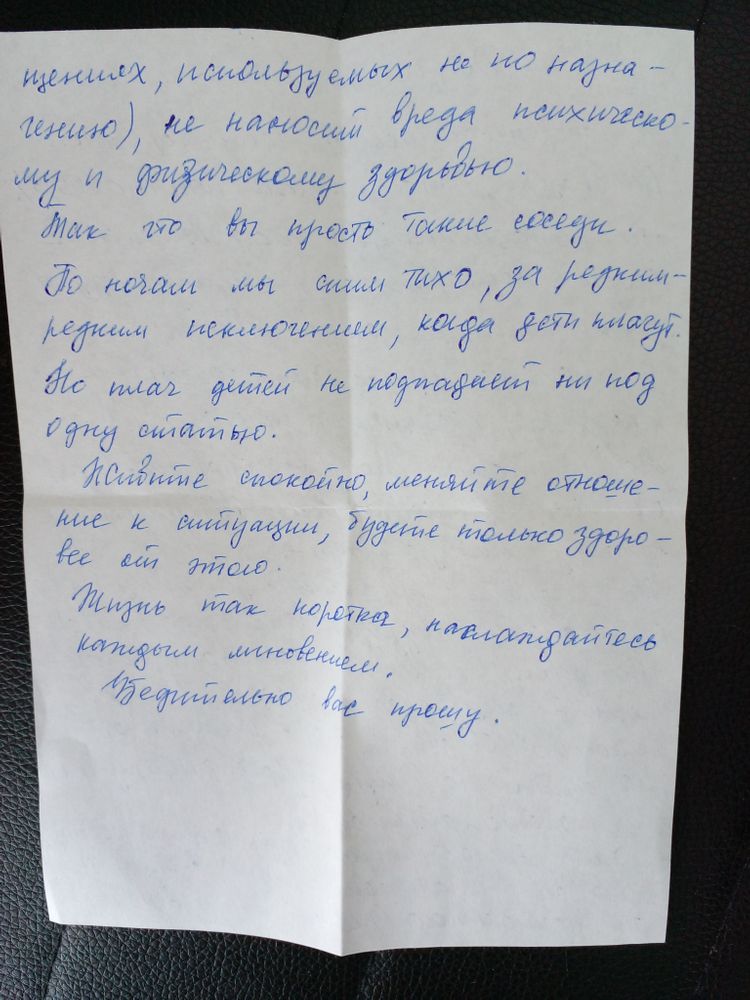 щениях, используемых не по назна-
чению), не наносим вреда психическо-
му и физическому здоровью.
Так что вы прость такие соседи.
По ночам мы спим тихо, за редким-
редким исключением, когда дети плачут.
Но плач детей не подпадает ни под
одну статью.
Живите спокойно, меняйте отноше-
ние к ситуации, будете только здоро-
вее от этого.
Жизнь так коротка, наслаждайтесь
каждым мгновением.
Убедительно вас прошу.